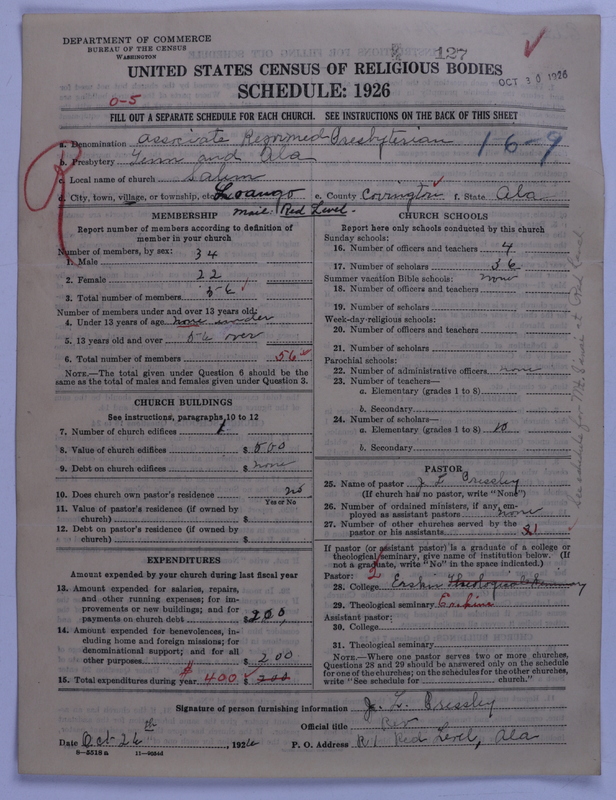 DEPARTMENT OF COMMERCE
BUREAU OF THE CENSUS
WASHINGTON
127
OCT 30 1926
UNITED STATES CENSUS OF RELIGIOUS BODIES
SCHEDULE: 1926
0-5
FILL OUT A SEPARATE SCHEDULE FOR EACH CHURCH. SEE INSTRUCTIONS ON THE BACK OF THIS SHEET
a. Denomination Associate Reformed Presbyterian
16-9
b. Presbytery Tenn and Ala
c. Local name of church Salem
d. City, town, village, or township, etc. Loango e. County Covington f. State Ala
mail: Red Level.
MEMBERSHIP
Report number of members according to definition of
member in your church
Number of members, by sex:
1. Male 34
2. Female 22
3. Total number of members 56
Number of members under and over 13 years old:
4. Under 13 years of age none under
5. 13 years old and over 56 over
6. Total number of members 56
NOTE.—The total given under Question 6 should be the
same as the total of males and females given under Question 3.
CHURCH BUILDINGS
See instructions, paragraphs 10 to 12
7. Number of church edifices 1
8. Value of church edifices $ 500
9. Debt on church edifices $ none
10. Does church own pastor's residence no
Yes or No
11. Value of pastor's residence (if owned by
church) $
12. Debt on pastor's residence (if owned by
church) $
EXPENDITURES
Amount expended by your church during last fiscal year
13. Amount expended for salaries, repairs,
and other running expenses; for im-
provements or new buildings; and for
payments on church debt $ 200
14. Amount expended for benevolences, in-
cluding home and foreign missions; for
denominational support; and for all
other purposes $ 200
15. Total expenditures during year $ 400 $ 200
CHURCH SCHOOLS
Report here only schools conducted by this church
Sunday schools:
16. Number of officers and teachers 4
17. Number of scholars 36
Summer vacation Bible schools: none
18. Number of officers and teachers
19. Number of scholars
Week-day-religious schools:
20. Number of officers and teachers
21. Number of scholars
Parochial schools:
22. Number of administrative officers none
23. Number of teachers—
a. Elementary (grades 1 to 8)
b. Secondary
24. Number of scholars—
a. Elementary (grades 1 to 8)
b. Secondary
PASTOR
25. Name of pastor J. L. Pressley
(If church has no pastor, write "None")
26. Number of ordained ministers, if any, em-
ployed as assistant pastors none
27. Number of other churches served by the
pastor or his assistants 1
If pastor (or assistant pastor) is a graduate of a college or
theological seminary, give name of institution below. (If
not a graduate, write "No" in the space indicated.)
Pastor: 2
28. College Erskin Theological Seminary
29. Theological seminary Erskine
Assistant pastor:
30. College
31. Theological seminary
NOTE.—Where one pastor serves two or more churches,
Questions 28 and 29 should be answered only on the schedule
for one of the churches; on the schedules for the other churches,
write "See schedule for church."
See schedule for Mt. at Red Level
Signature of person furnishing information J. L. Pressley
Official title Rev
Date Oct 26th, 1926 P. O. Address R1 Red Level, Ala
8-5518 a